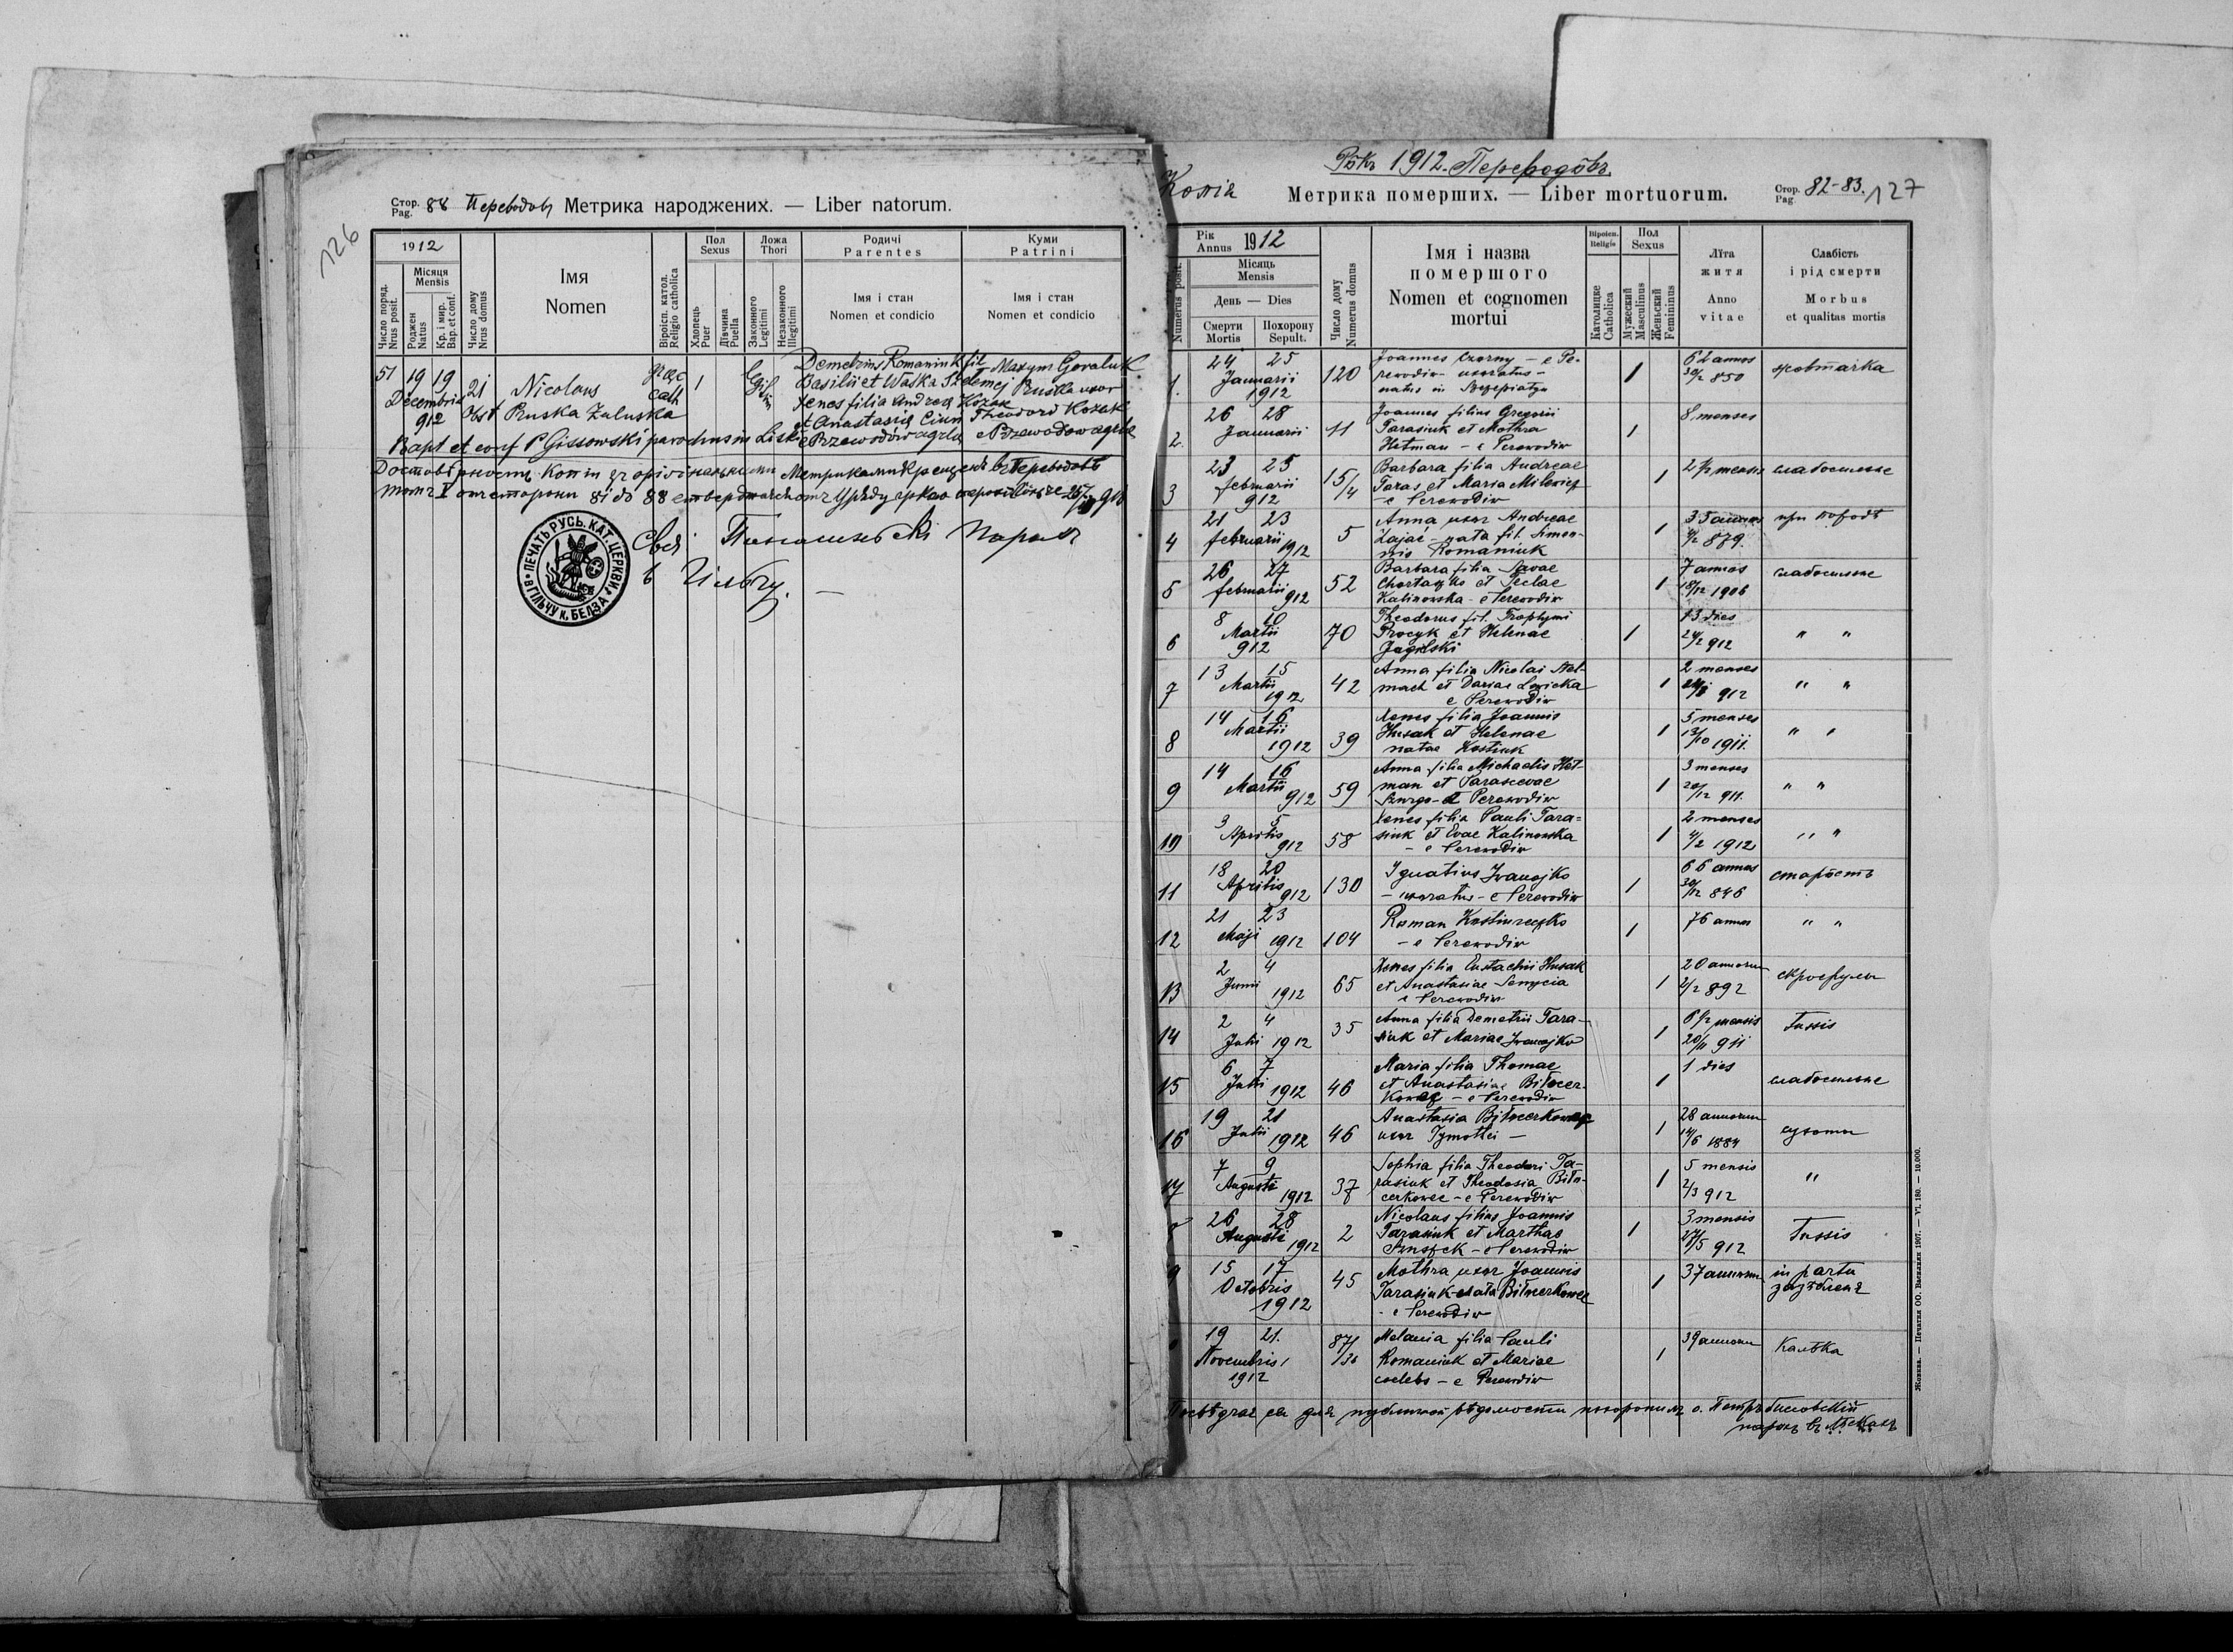 126
Стор. Pag. 88 Переводôвъ Метрика народжених. — Liber natorum.
1912
Число поряд. Nrus posit.
Місяця Mensis
Роджен Natus
Кр. і мир. Bap. et conf.
Число дому Nrus domus
Імя
Nomen
Віроісп. катол. Religio catholica
Пол Sexus
Хлопець Puer
Дївчина Puella
Ложа Thori
Законного Legitimi
Незаконного Illegitimi
Родичі
Parentes
Імя і стан
Nomen et condicio
Куми
Patrini
Імя і стан
Nomen et condicio
51 19 19 Decembris 912 21
Nicolaus
graec cath 1
Obst Pruska Zaluska
Demetrius Romaniuk fil
Basilii et Waska Szelemej
Xenes filia Andrea Kozak
et Anastasia Ciun
e Przewodów agrlae
Maxym Goraluk
Pruska uxor
Theodori Kozak
e Przewodow agrlae
Bapt et conf P Gissowski parochus in Liski
Достовірность копіи зъ оріґінальными Метриками Крещен. въ Переводовѣ
томъ I отъ стороны 81 до 88
ПЕЧАТЬ РУСЬ. КАТ. ЦЕРКВИ В ГІЛЬЧУ К. БЕЛЗА
парох
в Гільчу.
Копія
Рôкъ 1912. Переводôвъ.
Метрика померших. — Liber mortuorum.
Стор. Pag. 82-83.
127
Рік Annus 1912
Numerus posit.
Місяць Mensis
День — Dies
Смерти Mortis
Похорону Sepult.
Число дому Numerus domus
Імя і назва
помершого
Nomen et cognomen
mortui
Віроісп. Religio
Католицке Catholica
Пол Sexus
Мужеский Masculinus
Женьский Femininus
Лїта
житя
Anno
vitae
Слабість
і рід смерти
Morbus
et qualitas mortis
1. 24 25 Januarii 1912 120 Joannes Czorny — e Pe-
rewodiw uxoratus —
natus in
1 62 annos 30/2 850 жовтачка
2. 26 28 Januarii 11 Joannes filius Gregorii
Tarasiuk et Mothra
Hetman — e Perewodiw
1 8 menses
3 23 25 februarii 912 15/4 Barbara filia Andreae
Taras et Maria Milewicz
— e Perewodiw
1 2 1/2 menses слабосильне
4 21 23 februarii 1912 5 Anna uxor Andreae
Zajac — nata fil. Simeo-
nis Romaniuk
1 35 annos 879. при породѣ
5 26 27 februarii 912 52 Barbara filia Savae
et Teclae
Kalinowska — e Perewodiw
1 7 annos 18/12 1906 слабосильне
6 8 10 Martii 912 70 Theodorus fil. Trophymi
Procyk et Helenae
Jagelski
1 13 dies 24/2 912 " "
7 13 15 Martii 1912 42 Anna filia Nicolai Stel-
mach et Dariae Lewicka
e Perewodiw
1 2 menses 912 " "
8 14 16 Martii 1912 39 Xenes filia Joannis
Husak et Helenae
natae Kostiuk
1 5 menses 13/10 1911. " "
9 14 16 Martii 912 59 Anna filia Michaelis Het-
man et Parascevae
e Perewodiw
1 3 menses 20/12 911. " "
10 3 5 Aprilis 912 58 Xenes filia Pauli Tara=
siuk et Evae Kalinowska
— e Perewodiw
1 2 menses 4/2 1912 " "
11 18 20 Aprilis 912 130 Ignatius Iwanojko
— uxoratus — e Perewodiw
1 66 annos 30/12 846 старôсть
12 21 23 Maji 1912 104 Roman
— e Perewodiw
1 76 annos " "
13 2 4 Junii 1912 65 Xenes filia Eustachii Husak
et Anastasiae Senycia
e Perewodiw
1 20 annorum 2/2 892 скрофулы
14 2 4 Julii 1912 35 Anna filia Demetrii Tara-
siuk et Mariae Iwanojko
1 8 1/2 mensis 20/11 911 Tussis
15 6 7 Julii 1912 46 Maria filia Thomae
et Anastasiae Biłocer-
kowec — e Perewodiw
1 1 dies слабосильне
16 19 21 Julii 1912 46 Anastasia Biłocerkowec
uxor Tymothei —
1 28 annorum 14/6 1884 сухоты
17 7 9 Augusti 1912 37 Sophia filia Theodori Ta-
rasiuk et Theodosia Biło-
cerkowec — e Perewodiw
1 5 mensis 2/3 912 "
26 28 Augusti 1912 2 Nicolaus filius Joannis
Tarasiuk et Marthae
— e Perewodiw
1 3 mensis 27/5 912 Tussis
15 17 Octobris 1912 45 Mothra uxor Joannis
Tarasiuk — nata Biłocerkowec
e Perewodiw
1 37 annorum in partu
19 21. Novembris 1912 87/36 Melania filia Pauli
Romaniuk et Mariae
coelebs — e Perewodiw
1 39 annorum Калѣка
для публичной вѣдомости похоронилъ о. Петръ
парохъ въ
Жовква. — Печатня ОО. Василиян 1907. — VI. 180. — 10.000.